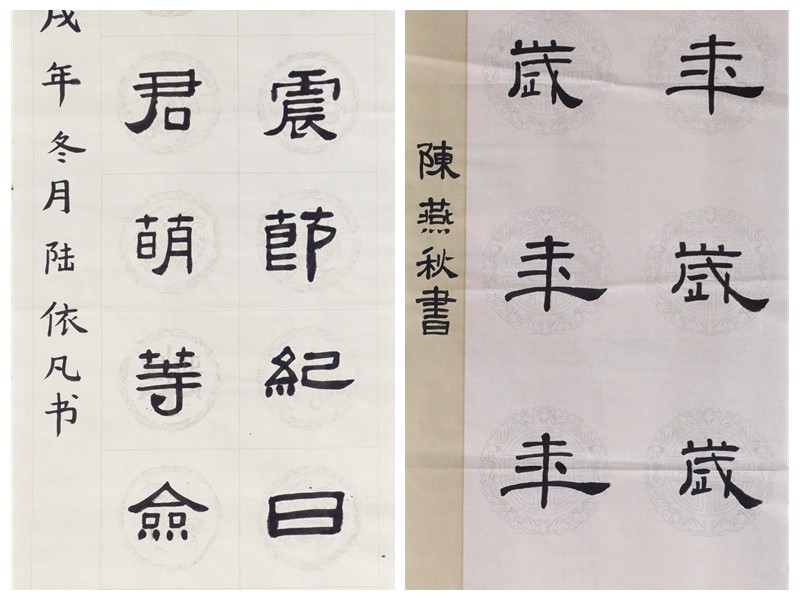 震節紀日
君萌等僉
戌年冬月陆依凡书
年歲歲
歲年年
陳燕秋書